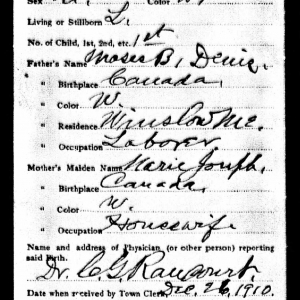 Sex Color W.
Living or Stillborn L.
No. of Child, 1st, 2nd, etc. 1st
Father's Name Moses B. Denis,
" Birthplace Canada,
" Color W.
" Residence Winslow Me.
" Occupation Laborer
Mother's Maiden Name Marie Joseph,
" Birthplace Canada,
" Color W.
" Occupation Housewife
Name and address of Physician (or other person) reporting
said Birth.
Dr. C. G. Rancourt
Date when received by Town Clerk, Dec. 26, 1910.